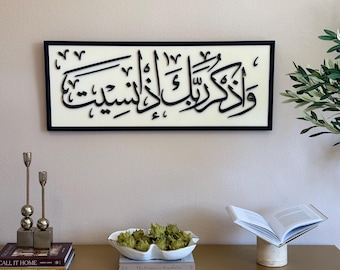 وَاذْكُر رَّبَّكَ إِذَا نَسِيتَ
CALL IT HOME